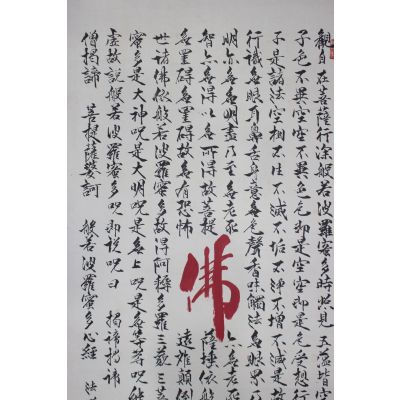 觀自在菩薩行深般若波羅蜜多時照見五蘊皆空
子色不異空空不異色色即是空空即是受想行
子是諸法空相不生不滅不垢不淨不增不減是故
行識無眼耳鼻舌身意無色聲香味觸法無眼界
明亦無無明盡乃至無老死亦無老死
智亦無得以無所得故菩提薩埵依般
無罣礙無罣礙故無有恐怖遠離顛倒
世諸佛依般若波羅蜜多故得阿耨多羅三藐三
蜜多是大神咒是大明咒是無上咒是無等等咒能
虛故說般若波羅蜜多咒即說咒曰 揭諦揭諦
僧揭諦 菩提薩婆訶 般若波羅蜜多心經 法
佛